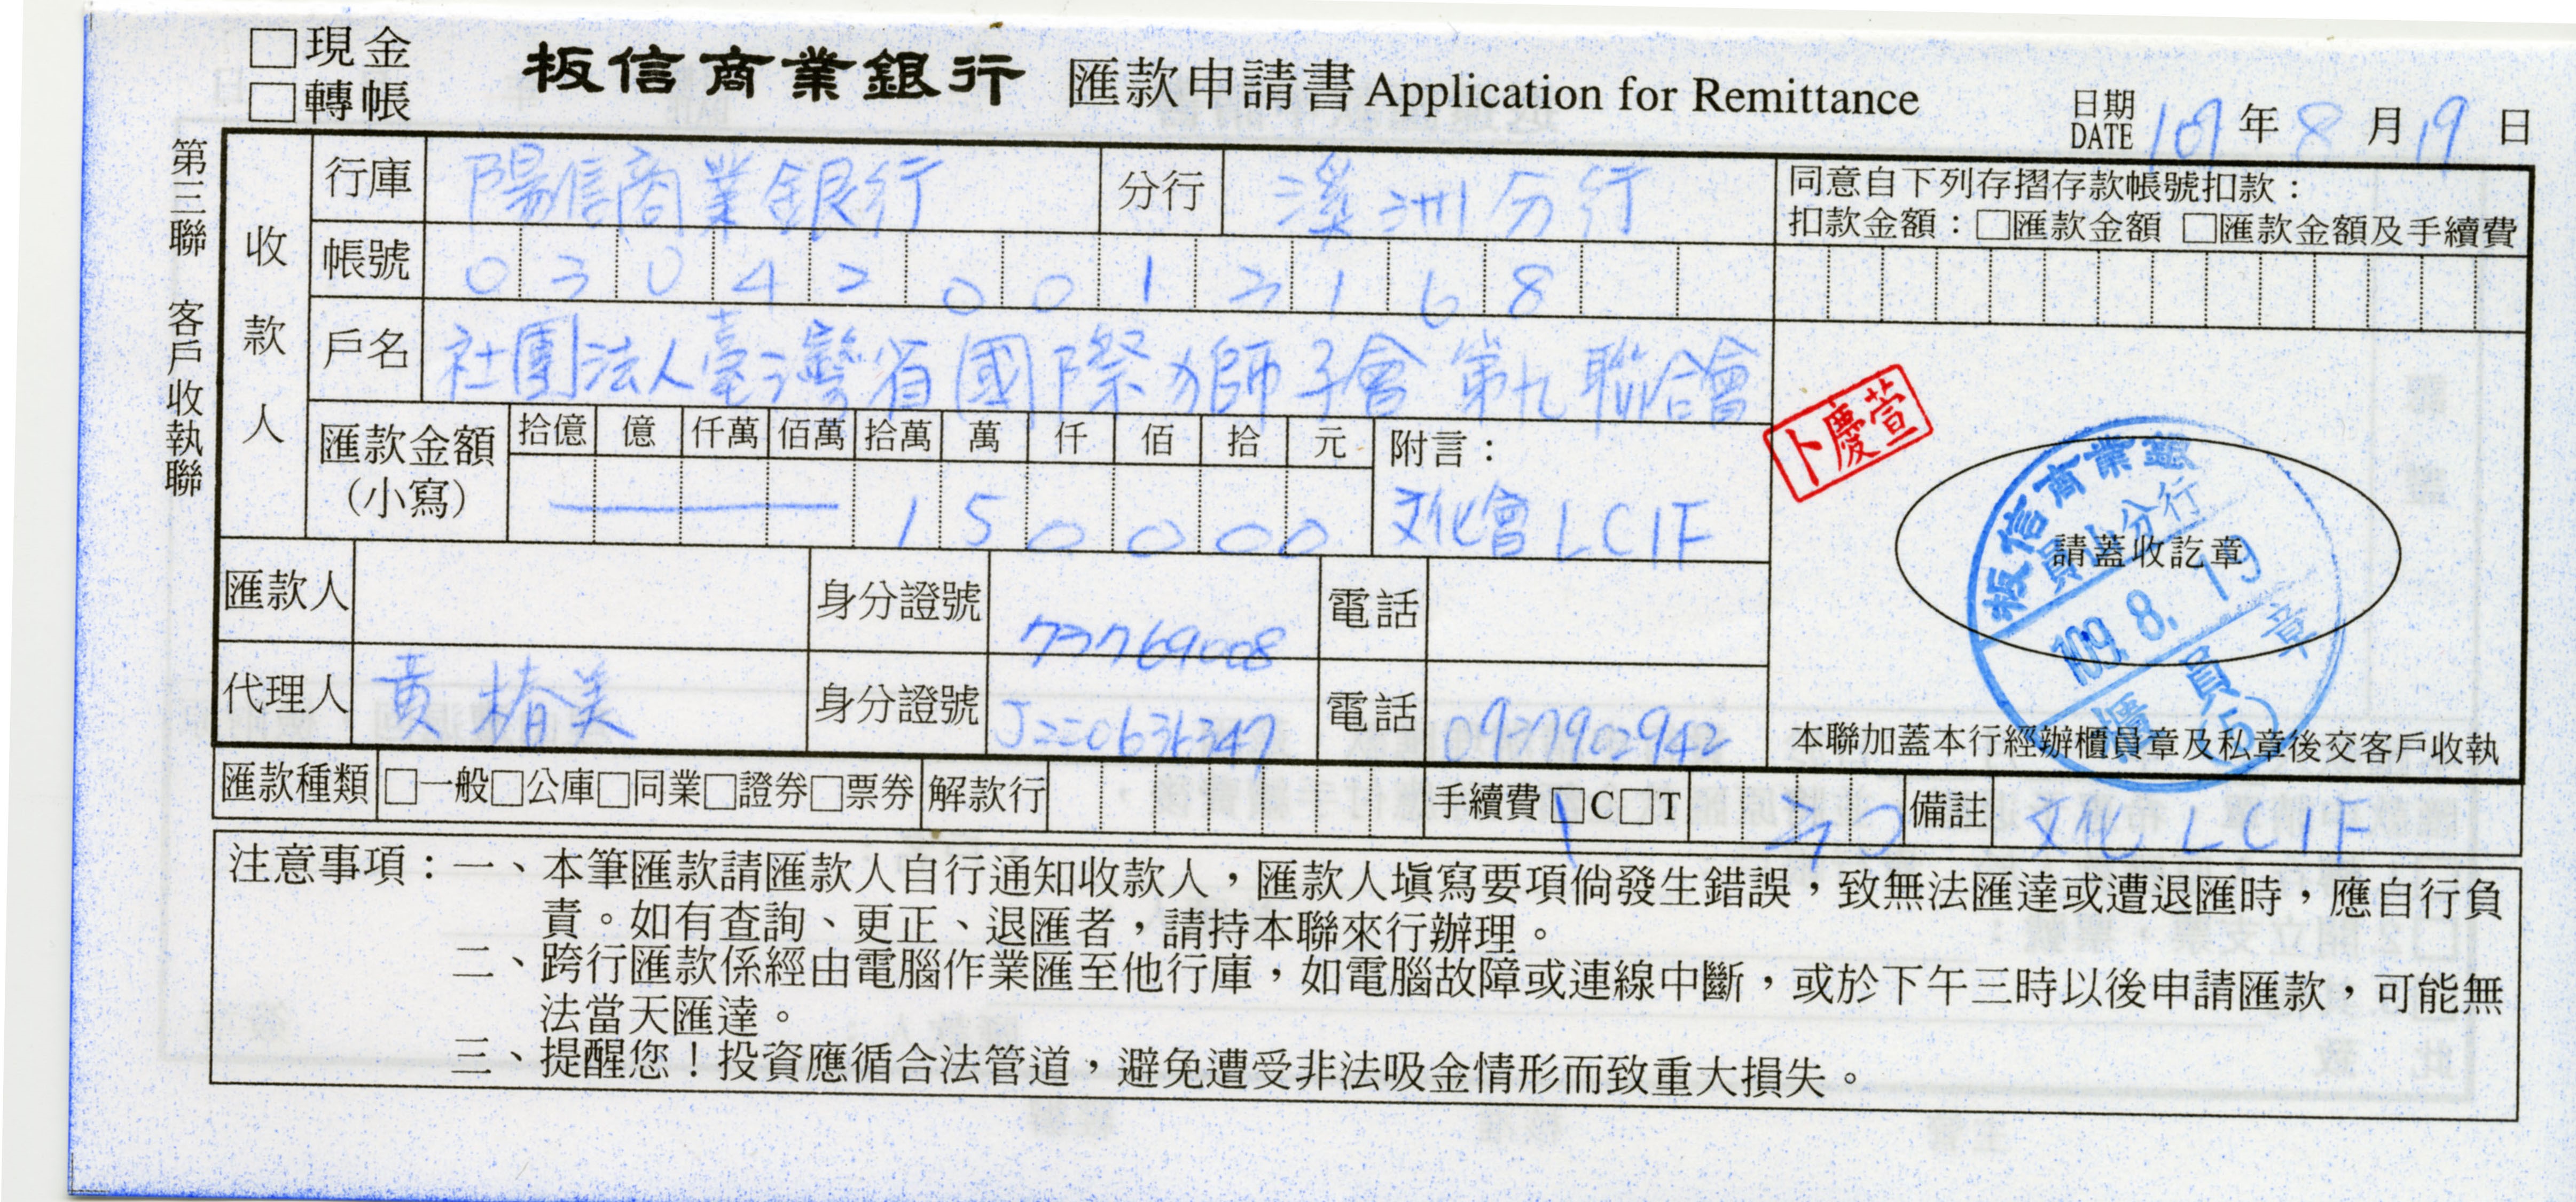 □現金
□轉帳
板信商業銀行 匯款申請書 Application for Remittance
日期 DATE 109 年 8 月 19 日
第三聯 客戶收執聯
收款人
行庫 陽信商業銀行 分行 溪洲分行
同意自下列存摺存款帳號扣款：
扣款金額：□匯款金額 □匯款金額及手續費
帳號 030420012168
戶名 社團法人臺灣省國際獅子會第九聯合會
匯款金額（小寫） 拾億 億 仟萬 佰萬 拾萬 萬 仟 佰 拾 元
150000
附言：
文化會 LCIF
卜慶萱
請蓋收訖章
板信商業銀
員山分行
109. 8. 19
櫃員章
(5)
匯款人 身分證號 77769008 電話
代理人 黃椿美 身分證號 J220636347 電話 0937902942
本聯加蓋本行經辦櫃員章及私章後交客戶收執
匯款種類 □一般□公庫□同業□證券□票券 解款行 手續費 □C□T 30 備註 文化 LCIF
注意事項：一、本筆匯款請匯款人自行通知收款人，匯款人填寫要項倘發生錯誤，致無法匯達或遭退匯時，應自行負
責。如有查詢、更正、退匯者，請持本聯來行辦理。
二、跨行匯款係經由電腦作業匯至他行庫，如電腦故障或連線中斷，或於下午三時以後申請匯款，可能無
法當天匯達。
三、提醒您！投資應循合法管道，避免遭受非法吸金情形而致重大損失。